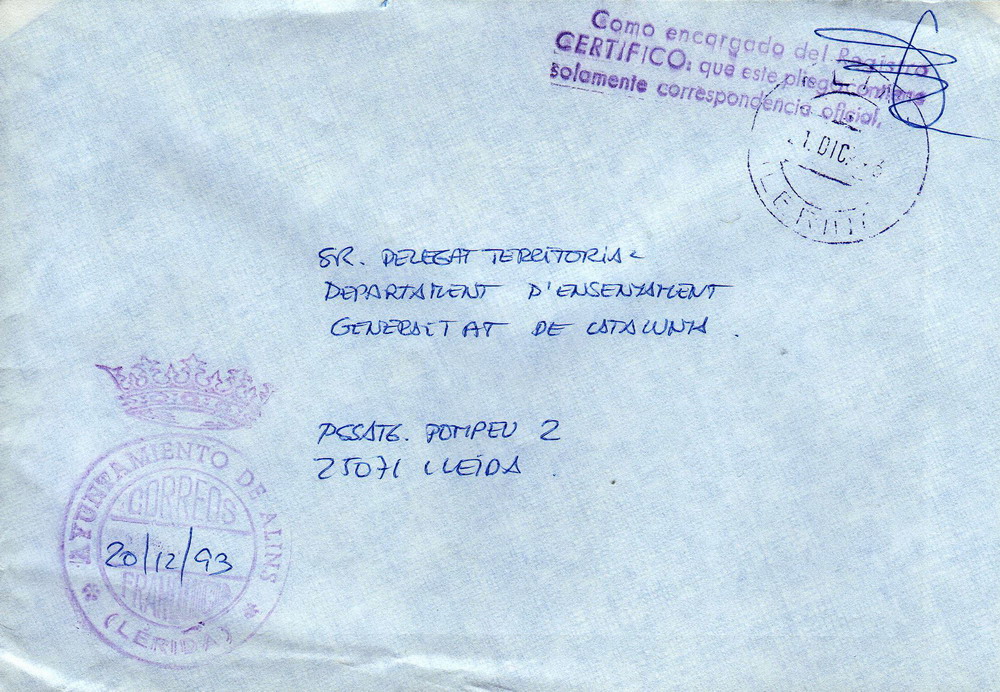 Como encargado del Registro
CERTIFICO: que este pliego contiene
solamente correspondencia oficial.
DIC.
SR. DELEGAT TERRITORIAL
DEPARTAMENT D'ENSENYAMENT
GENERALITAT DE CATALUNYA.
PSSATG. POMPEU 2
25071 LLEIDA.
AYUNTAMIENTO DE ALINS
CORREOS
20/12/93
(LÉRIDA)